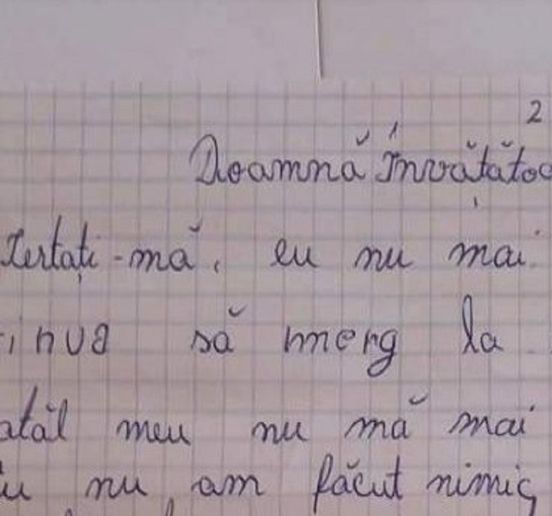 2
Doamnă Învățătoa
Iertați-mă, eu nu mai
inua să merg la
atăl meu nu mă mai
u nu am făcut nimic